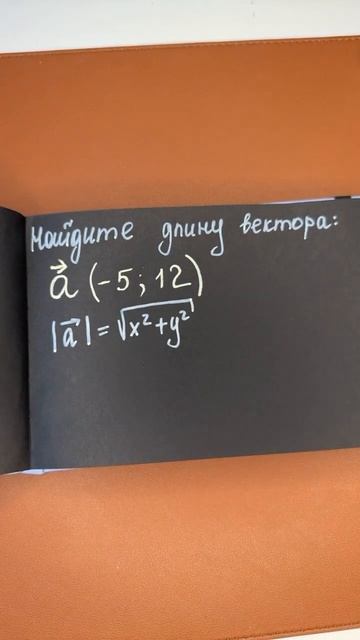 Найдите длину вектора:
a⃗ (-5; 12)
|a⃗| = √x²+y²